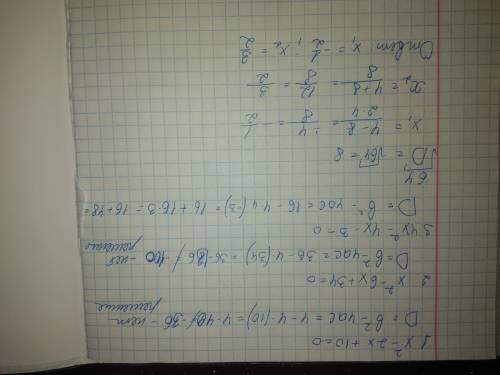 1 x² - 2x + 10 = 0
D = b² - 4ac = 4 - 4·(10) = 4 - 40 = -36 - нет
решение
2 x² - 6x + 34 = 0
D = b² - 4ac = 36 - 4·(34) = 36 - 136 = -100 - нет
решение
3 4x² - 4x - 3 = 0
D = b² - 4ac = 16 - 4·4·(-3) = 16 + 16·3 = 16 + 48 =
64
√D = √64 = 8
x₁ = 4-8/2·4 = -4/8 = -1/2
x₂ = 4+8/8 = 12/8 = 3/2
Ответ: x₁ = -1/2; x₂ = 3/2